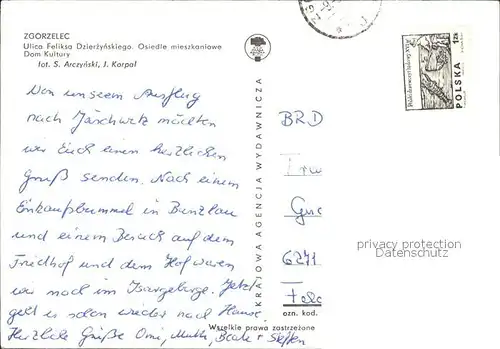 ZGORZELEC
Ulica Feliksa Dzierżyńskiego. Osiedle mieszkaniowe
Dom Kultury
fot. S. Arczyński, J. Korpal
Von unserem Ausflug
nach Jäschwitz möchten
wir Euch einen herzlichen
Gruß senden. Nach einem
Einkaufsbummel in Bunzlau
und einem Besuch auf dem
Friedhof und dem Hof waren
wir noch im Isargebirge. Jetzt
geht es schon wieder nach Hause.
Herzliche Grüße Omi, Mutti, Beate + Steffen
KRAJOWA AGENCJA WYDAWNICZA
POLSKA
1 ZŁ
BRD
6271
privacy protection
Datenschutz
ozn. kod.
Wszelkie prawa zastrzeżone